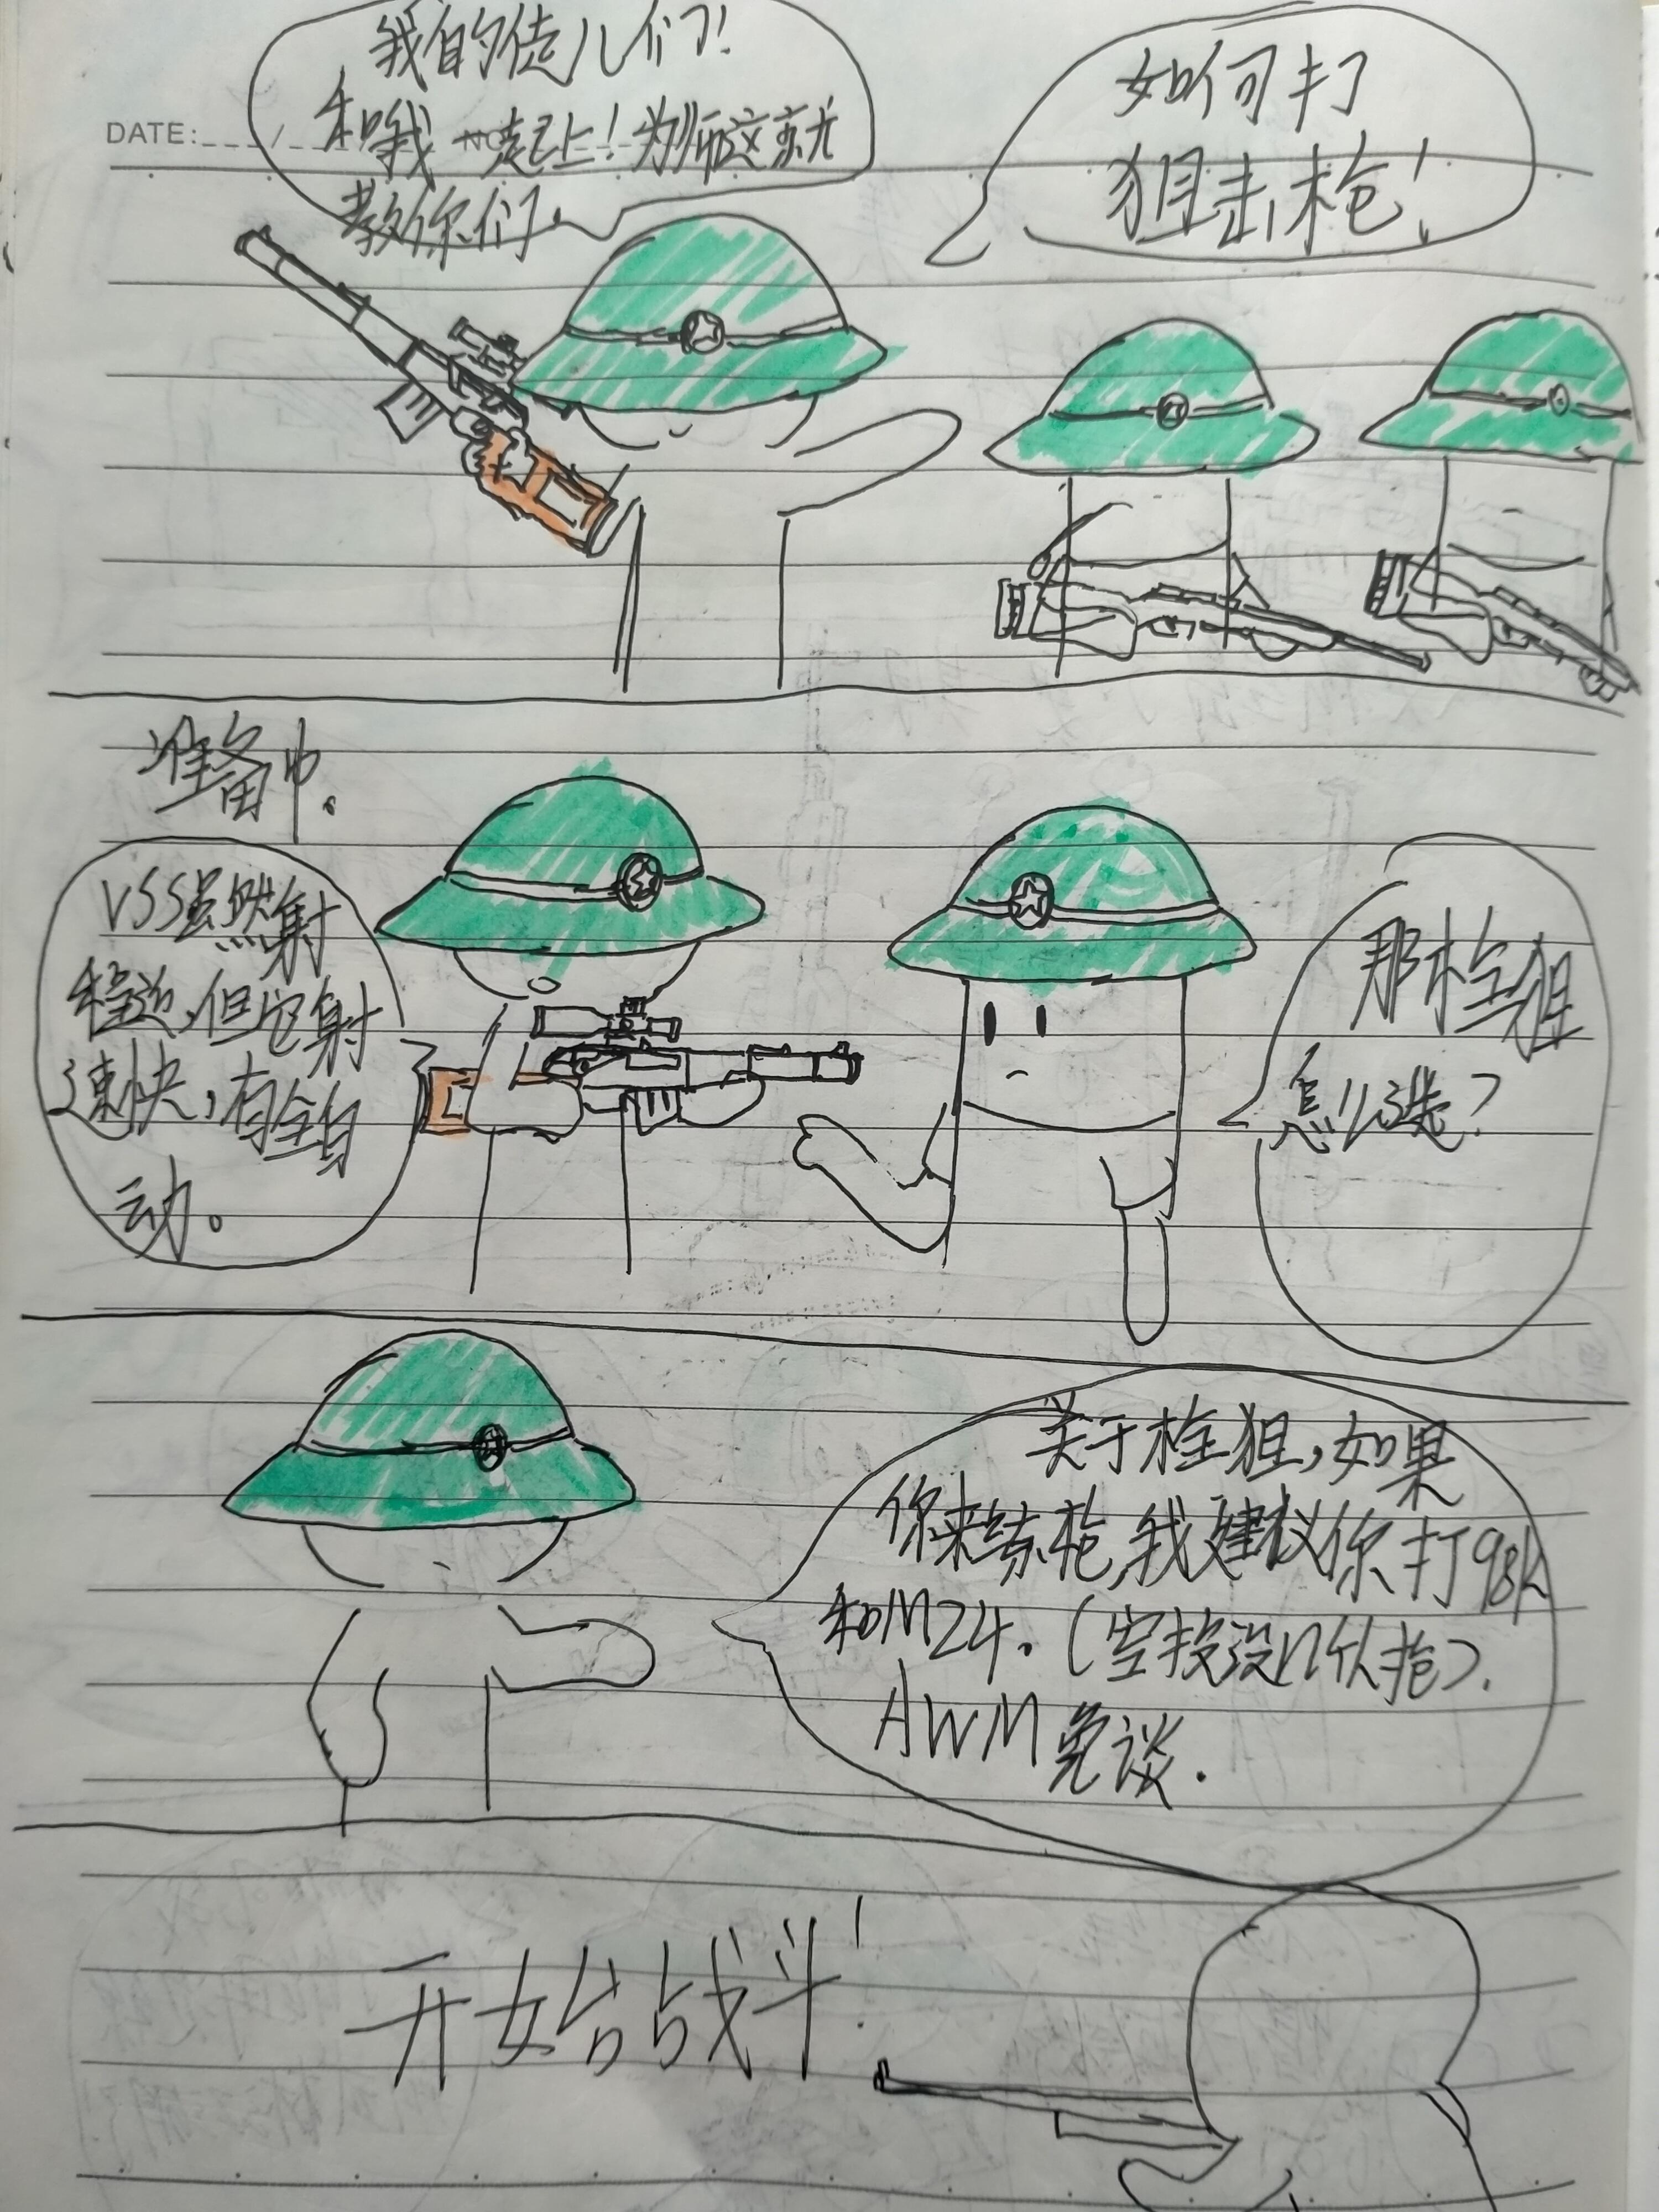 我的徒儿们!
和我一起上!为师这就
教你们.
如何打
狙击枪!
DATE:
准备中.
VSS虽然射
程近,但它射
速快,有全自
动。
那栓狙
怎么选?
关于栓狙,如果
你来练枪,我建议你打98k
和M24.(空投没几佽抢).
AWM免谈.
开始战斗!